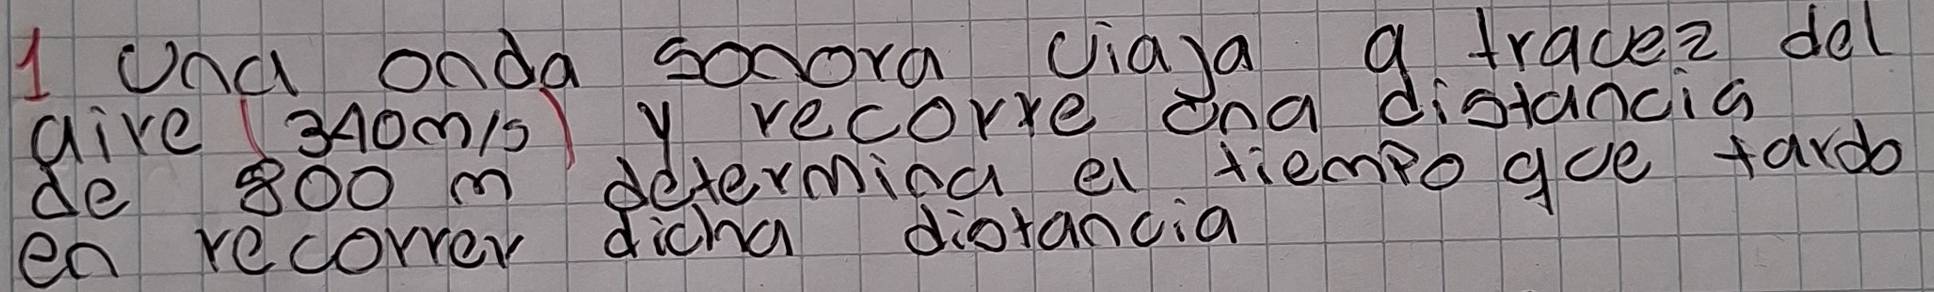 1 Una onda sonora viaja a travez del
aire (340m/s) y recorre una distancia
de 800 m determina el tiempo que tardo
en recorrer dicha distancia